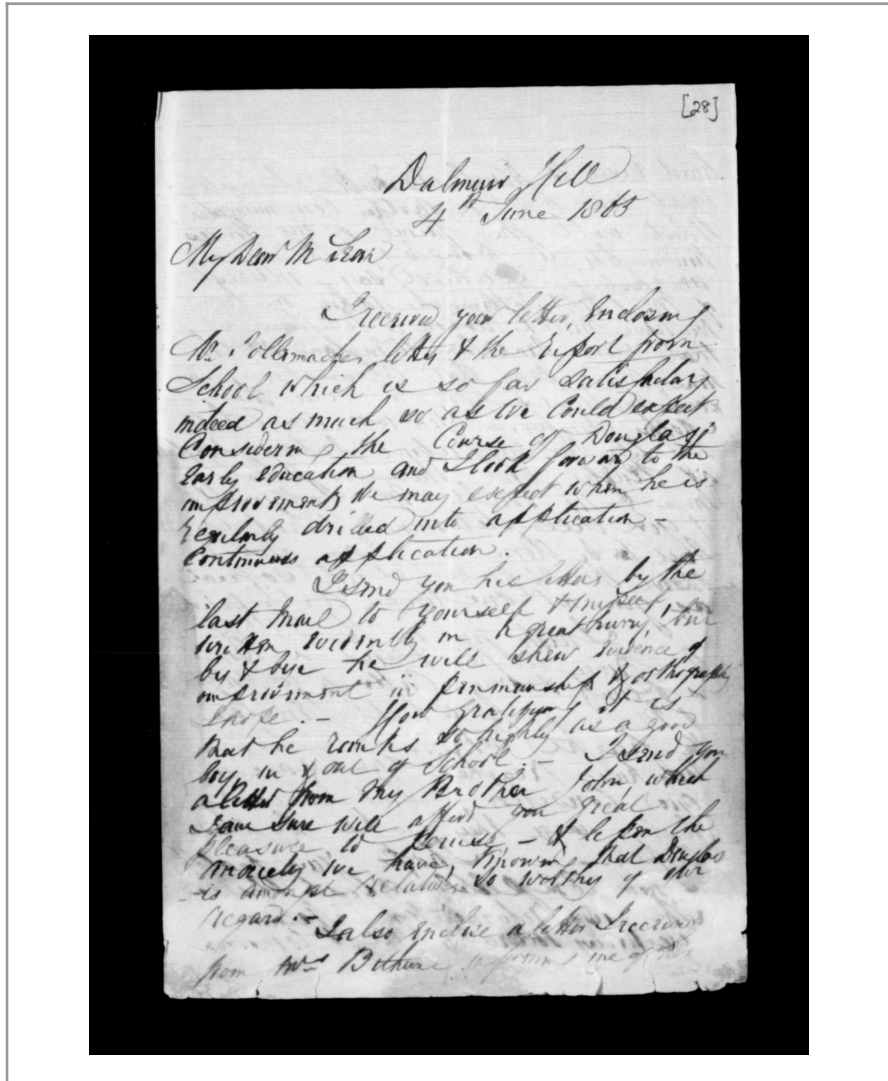 [28]
Dalmuir Hill
4th June 1865
My Dear McLean
I received your letter, Enclosing
Mr. Tollemaches letter & the report from
School which is so far satisfactory
indeed as much so as we could expect
Considering the Course of Douglas'
Early education and I look forward to the
improvements we may expect when he is
regularly drilled into application –
Continuous application.
I send you his letters by the
last Mail to yourself & myself,
written evidently in a great hurry, but
by & bye he will shew evidence of
improvement in penmanship & orthography
I hope. – How gratifying it is
that he ranks so highly as a good
boy, in & out of School. – I send you
a letter from my Brother John, which
I am sure will afford you great
pleasure to peruse – & lessen the
anxiety we have, knowing that Douglas
is amongst relatives so worthy of our
regard. –
I also enclose a letter I received
from Mrs Bethune informing me of her